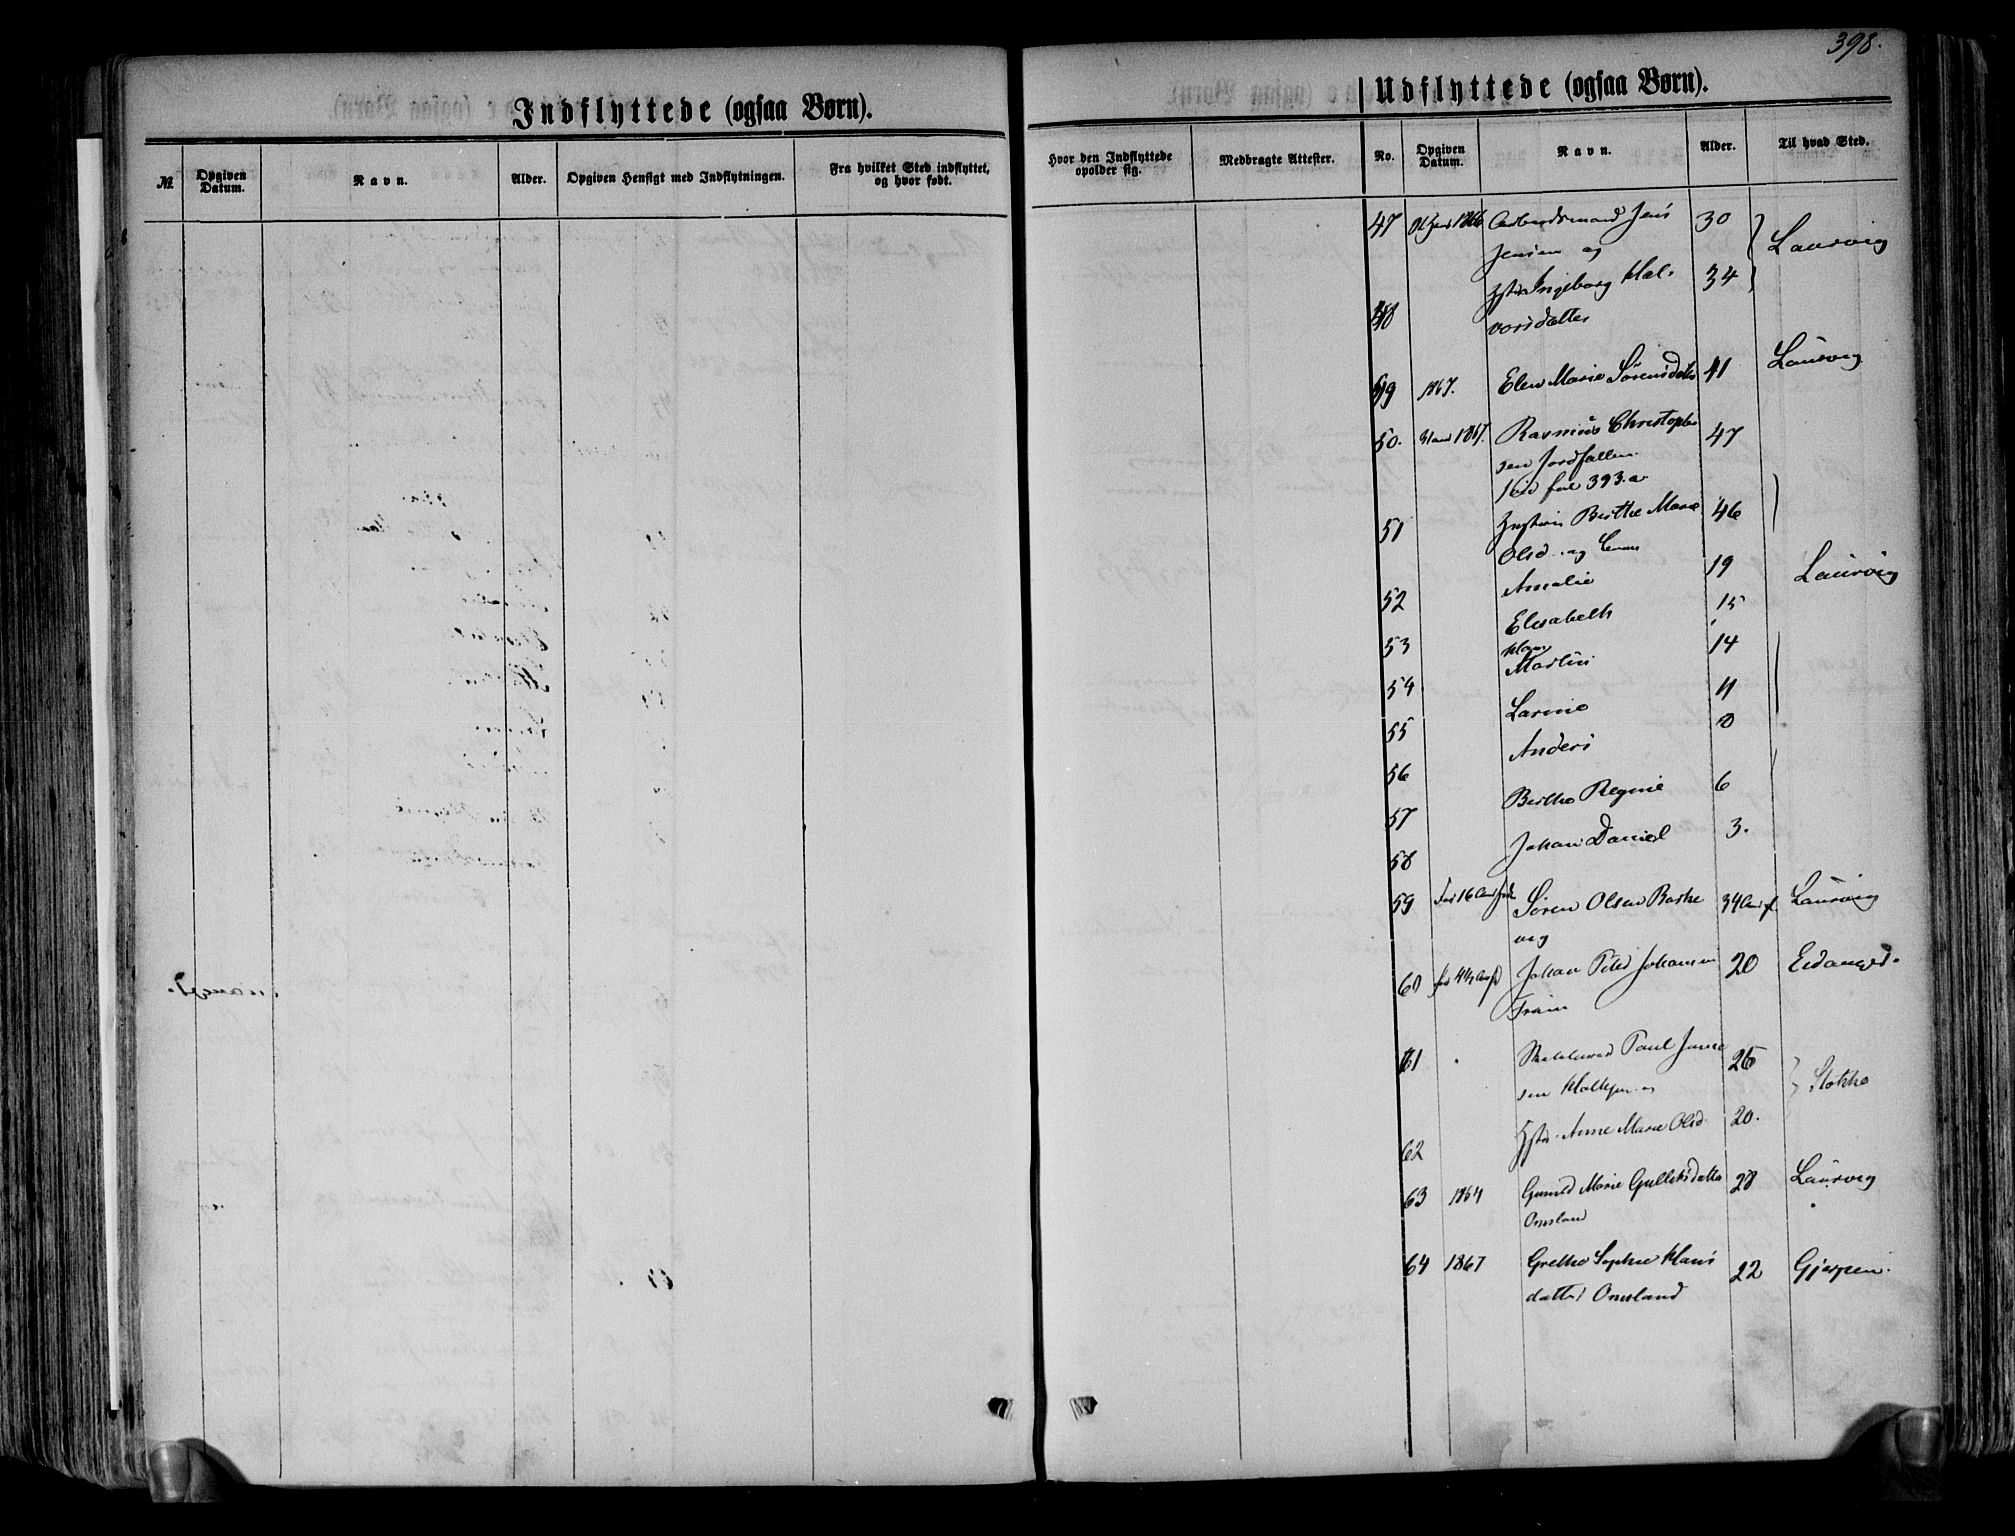 398.
Indflyttede (ogsaa Børn).
Udflyttede (ogsaa Børn).
№
Opgiven Datum.
Navn.
Alder.
Opgiven Hensigt med Indflytningen.
Fra hvilket Sted indflyttet, og hvor født.
Hvor den Indflyttede opholder sig.
Medbragte Attester.
No.
Opgiven Datum.
Navn.
Alder.
Til hvad Sted.
47 1866 Arbeidsmand Jens 30
Jensen og Laurvig
48 Hstr Ingeborg Hal- 34
vorsdatter
49 1867. Elen Marie Sørensdatter 41 Laurvig
50. 1867. Rasmus Christopher 47
sen Jordfallen
fol 393.a
51 Hustru Berthe Marie 46
Olsd. og
52 Amalie 19 Laurvig
53 Elisabeth 15
54 Hans Martin 14
55 Larine 11
56 Anders 8
57 Berthe Regine 6
58 Johan Daniel 3.
59 for 16 Søren Olsen Barke 34 Laurvig
vig
60 for 4½ Johan Peter Johansen 20 Eidanger.
61 Paul 26
sen og Stokke
62 Hstr. Anne Marie Olsd. 20.
63 1864 Gunild Marie Gulliksdatter 28 Laurvig
Omsland
64 1867 Grethe Sophie Hans 22 Gjerpen.
datter Omsland